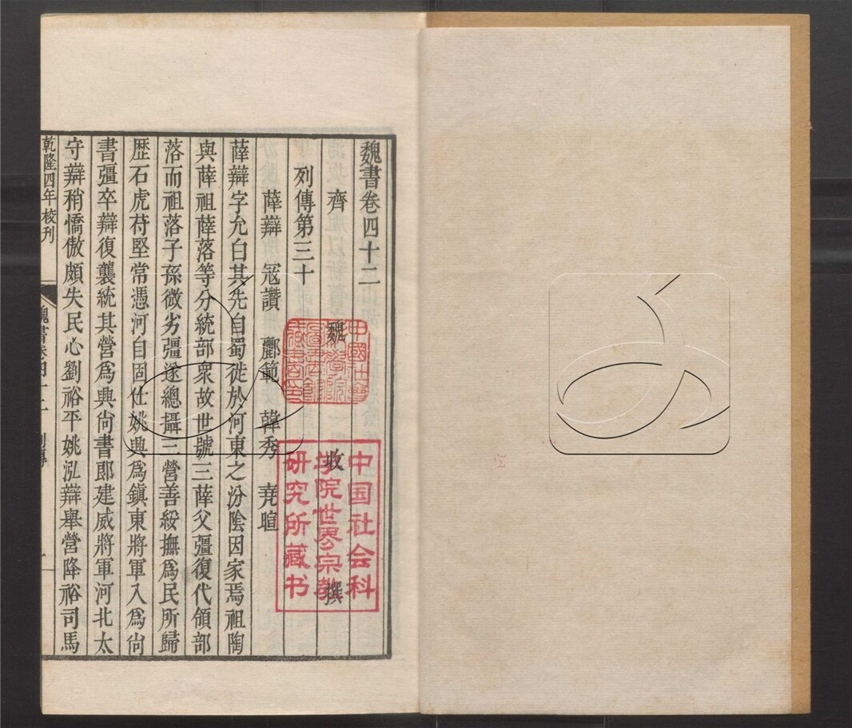 魏書卷四十二
齊 魏 收 撰
列傳第三十
薛辯 冦讚 酈範 韓秀 堯暄
薛辯字允白其先自蜀徙於河東之汾陰因家焉祖陶
與薛祖薛落等分統部衆故世號三薛父彊復代領部
落而祖落子孫微劣彊遂總攝三營善綏撫爲民所歸
歴石虎苻堅常憑河自固仕姚興爲鎭東將軍入爲尙
書彊卒辯復襲統其營爲興尙書郎建威將軍河北太
守辯稍憍傲頗失民心劉裕平姚泓辯舉營降裕司馬
乾隆四年校刊
魏書卷四十二 列傳 一
中国社会科
学院世界宗教
研究所藏书